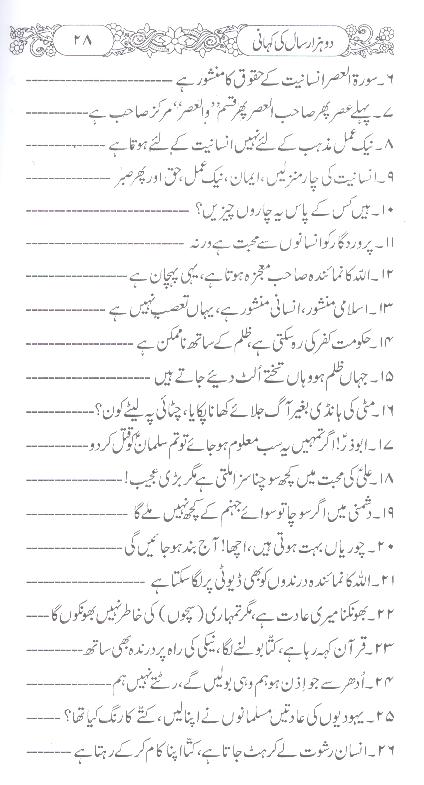 دو ہزار سال کی کہانی
۲۸
۶۔ سورۃ العصر انسانیت کے حقوق کا منشور ہے
۷۔ پہلے عصر پھر صاحب العصر پھر قسم ”والعصر“ مرکز صاحب ہے
۸۔ نیک عمل مذہب کے لئے نہیں انسانیت کے لئے ہوتا ہے
۹۔ انسانیت کی چار منزلیں، ایمان، نیک عمل، حق اور پھر صبر
۱۰۔ ہیں کس کے پاس یہ چاروں چیزیں؟
۱۱۔ پروردگار کو انسانوں سے محبت ہے ورنہ
۱۲۔ اللہ کا نمائندہ صاحب معجزہ ہوتا ہے، یہی پہچان ہے
۱۳۔ اسلامی منشور، انسانی منشور ہے، یہاں تعصب نہیں ہے
۱۴۔ حکومت کفر کی رہ سکتی ہے، ظلم کے ساتھ ناممکن ہے
۱۵۔ جہاں ظلم ہو وہاں تختے اُلٹ دیئے جاتے ہیں
۱۶۔ مٹی کی ہانڈی بغیر آگ جلائے کھانا پکایا، چٹائی پہ لیٹے کون؟
۱۷۔ ابوذرؓ! اگر تمہیں یہ سب معلوم ہو جائے تو تم سلمانؓ کو قتل کر دو
۱۸۔ علیؑ کی محبت میں کچھ سوچنا سزا ملتی ہے مگر بڑی عجیب!
۱۹۔ دشمنی میں اگر سوچا تو سوائے جہنم کے کچھ نہیں ملے گا
۲۰۔ چوریاں بہت ہوتی ہیں، اچھا! آج بند ہو جائیں گی
۲۱۔ اللہ کا نمائندہ درندوں کو بھی ڈیوٹی پر لگا سکتا ہے
۲۲۔ بھونکنا میری عادت ہے، مگر تمہاری (سچوں) کی خاطر نہیں بھونکوں گا
۲۳۔ قرآن کہہ رہا ہے، کتّا بولنے لگا، نیکی کی راہ پر درندہ بھی ساتھ
۲۴۔ اُدھر سے جو اِذن ہو ہم وہی بولیں گے، رٹتے نہیں ہم
۲۵۔ یہودیوں کی عادتیں مسلمانوں نے اپنا لیں، کتّے کا رنگ کیا تھا؟
۲۶۔ انسان رشوت لے کر ہٹ جاتا ہے، کتّا اپنا کام کر کے رہتا ہے